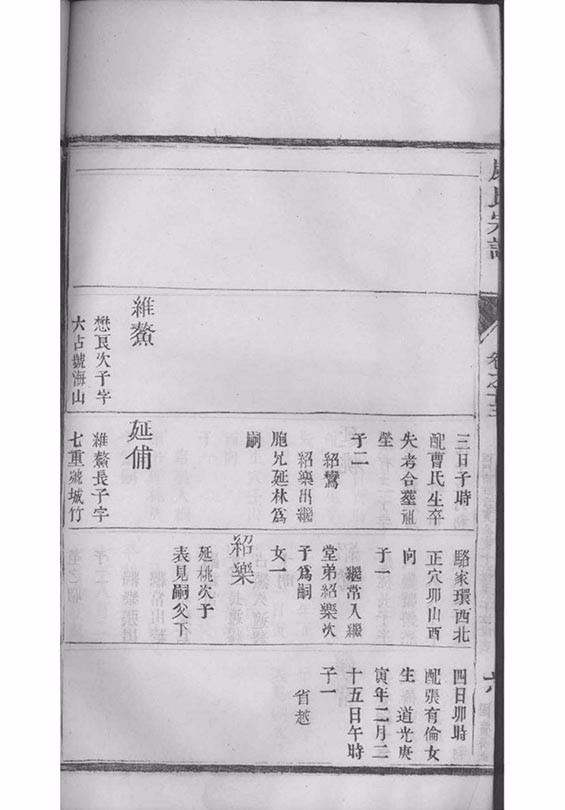 氏宗譜
卷之十三
六
維鰲
懋良次子字
六占號海山
三日子時
配曹氏生卒
失考合墓祖
塋
子二
紹鷟
紹樂出繼
胞兄延林爲
嗣
延俌
維鰲長子字
七重號城竹
駱家環西北
正穴卯山酉
向
子一
繼常入繼
堂弟紹樂次
子爲嗣
女一
紹樂
延桃次子
表見嗣父下
四日卯時
配張育倫女
生道光庚
寅年二月二
十五日午時
子一
省越